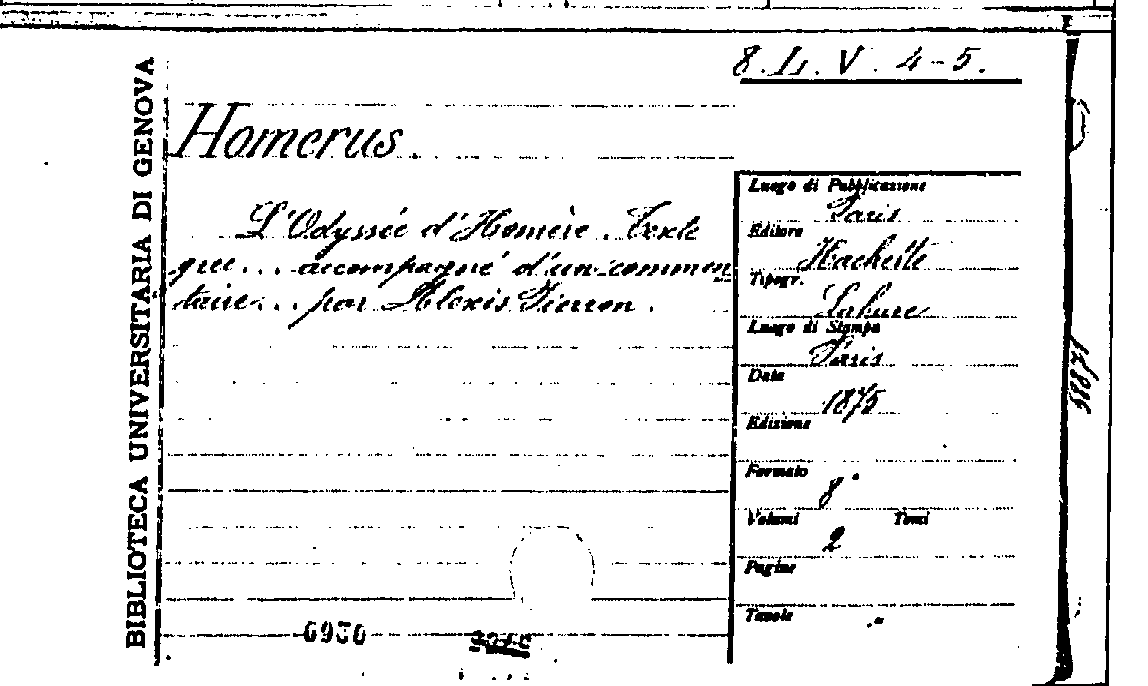 BIBLIOTECA UNIVERSITARIA DI GENOVA
8. L. V. 4-5.
Homerus.
L'Odyssée d'Homère. Texte
grec... accompagné d'un commen
taire... par Alexis Pierron.
Luogo di Pubblicazione
Paris
Editore
Hachette
Tipogr.
Lahure
Luogo di Stampa
Paris
Data
1875
Edizione
Formato
8°
Volumi Tomi
2
Pagine
Tavole
6930